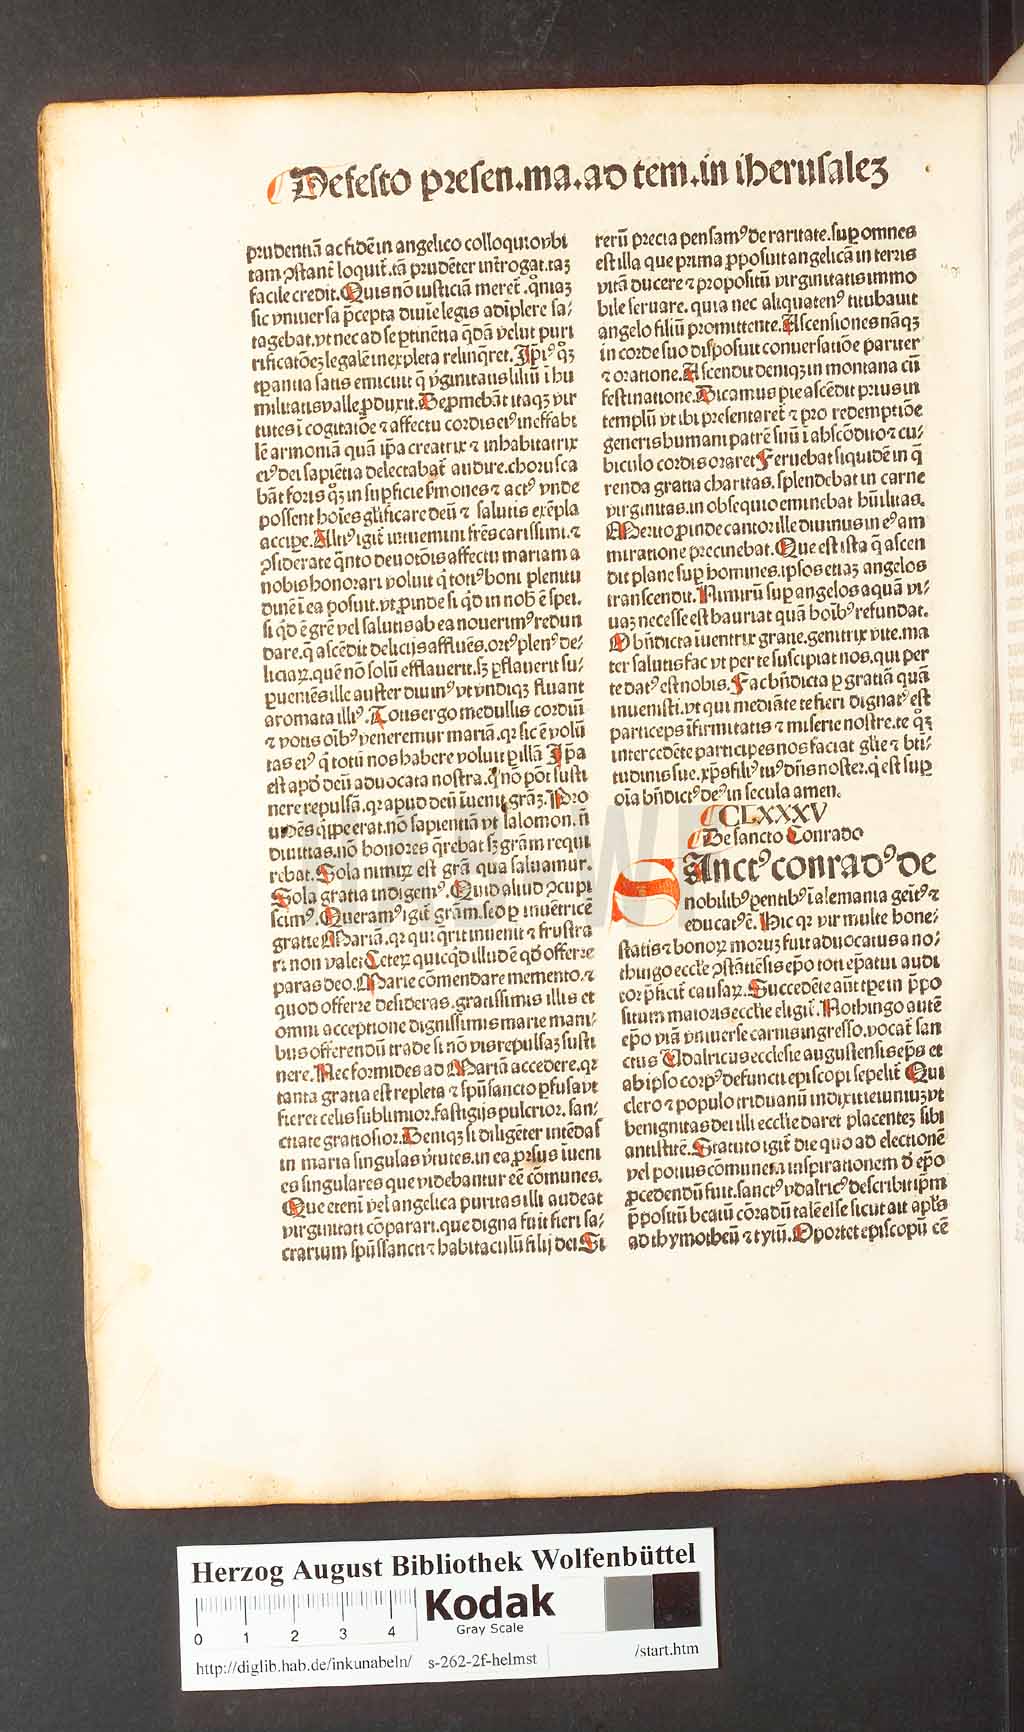 De festo presen.ma.ad tem.in iherusalez
prudentiã ac fidẽ in angelico colloquio vbi
tam ꝯstant̃ loquit̃.tã prudẽter int̃rogat.taʒ
facile credit.Quis nõ iusticiã meret̃.qm̃iaʒ
sic vniuersa p̃cepta diuĩe legis adĩplere sa⸗
tagebat.vt nec ad se ptinẽtia q̃dã velut puri
rificatõeʒ legalẽ inexpleta relinq̃ret.Ip̃iꝰ qʒ
tp̃antia satis emicuit q̃ v̾ginitatis liliũ ĩ hu
militatis valle ꝓduxit.Depmebãt itaqʒ vir
tutes ĩ cogitatiõe ⁊ affectu cordis eiꝰ ineffabi
lẽ armoniã quã ip̃a creatrix ⁊ inhabitatrix
eiꝰ dei sapiẽtia delectabat̃ audire.chorusca
bãt foris qʒ in sup̱ficie s̾mones ⁊ actꝰ vnde
possent hoĩes gl̃ificare deũ ⁊ salutis exẽpla
accipe.Altiꝰ igit̃ intuemini fr̃es carissimi.⁊
ꝯsiderate q̃nto deuotõis affectu mariam a
nobis honorari voluit q̃ totiꝰ boni plenitu
dinẽ ĩ ea posuit.vt ꝓinde si q̃d in nob̃ ẽ spei.
si q̃d ẽ gr̃e vel salutis ab ea nouerimꝰ redun
dare.q̃ ascẽdit delicijs affluẽs.ortꝰ plenꝰ de⸗
liciaꝝ.quẽ nõ solũ efflauerit.sʒ ꝑflauerit su⸗
ꝑueniẽs ille auster diuinꝰ vt vndiqʒ fluant
aromata illiꝰ.Totis ergo medullis cordiũ
⁊ votis oĩbꝰ veneremur mariã.qꝛ sic ẽ volũ
tas eiꝰ q̃ totũ nos habere voluit ꝑ illã Ip̃a
est apd̾ deũ aduocata nostra.q̃ nõ põt susti
nere repulsã.qꝛ apud deũ ĩuenit gr̃aʒ.Pro
udẽs q̃ipe erat.nõ sapientiã vt salomon.nõ
diuitias.nõ honores q̃rebat sʒ gr̃am requi
rebat.Sola nimiꝝ est gr̃a qua saluamur.
Sola gratia indigemꝰ.Quid aliud ꝯcupi
scimꝰ.Queramꝰ igit̃ gr̃am.sed ꝑ inuẽtricẽ
gratie Mariã.qꝛ qui q̃rit inuenit ⁊ frustra
ri non valet Ceteꝝ quicq̃d illud ẽ qd̾ offerre
paras deo.Marie cõmendare memento.⁊
quod offerre desideras.gratissimis illis et
omni acceptione dignissimis marie mani⸗
bus offerendũ trade si nõ vis repulsaʒ susti
nere.Nec formides ad Mariã accedere.qꝛ
tanta gratia est repleta ⁊ spũsancto ꝑfusa vt
fieret celis sublimior.fastigijs pulcrior.san⸗
ctitate gratiosior.Deniqʒ si diligẽter intẽdas
in maria singulas v̾tutes.in ea ꝓrsus ĩueni
es singulares que videbantur eẽ cõmunes.
Que etenĩ vel angelica puritas illi audeat
virginitati cõparari.que digna fuit fieri sa⸗
crarium spũssancti ⁊ habitaculũ filij dei Si
rerũ precia pensamꝰ de raritate.sup̱ omnes
est illa que prima ꝓposuit angelicã in terris
vitã ducere ⁊ propositũ virginitatis immo
bile seruare.quia nec aliquatenꝰ titubauit
angelo filiũ promittente.Ascensiones nãqʒ
in corde suo disposuit conuersatiõe pariter
⁊ oratione.Ascendit deniqʒ in montana cũ
festinatione.Dicamus pie ascẽdit prius in
templũ vt ibi presentaret̃ ⁊ pro redemptiõe
generis humani patrẽ suũ ĩ abscõdito ⁊ cu⸗
biculo cordis oraret Feruebat siquidẽ in q̃
renda gratia charitas.splendebat in carne
virginitas.in obsequio eminebat hũilitas.
Merito ꝓinde cantor ille diuinus in eꝰ am
miratione precinebat.Que est ista q̃ ascen
dit plane sup̱ homines.ipsos etiaʒ angelos
transcendit.Nimirũ sup̱ angelos aquã vi⸗
uaʒ necesse est hauriat quã hoĩbꝰ refundat.
O bñdicta ĩuentrix gratie.genitrix vite.ma
ter salutis fac vt per te suscipiat nos.qui per
te datꝰ est nobis.Fac bñdicta ꝑ gratiã quã
inuenisti.vt qui mediãte te fieri dignatꝰ est
particeps ĩfirmitatis ⁊ miserie nostre.te qʒ
intercedẽte participes nos faciat gl̃ie ⁊ bt̃i⸗
tudinis sue.xp̃s filiꝰ tuꝰ dñs noster.q̃ est sup̱
oĩa bñdictꝰ deꝰ in secula amen.
CLXXXV
De sancto Conrado
SAnctꝰ conradꝰ de
nobilibꝰ ꝑentibꝰ ĩ alemania geĩtꝰ ⁊
educatꝰ ẽ.Hic qꝛ vir multe hone⸗
statis ⁊ bonoꝝ moruʒ fuit aduocatus a no⸗
thingo eccl̃ie ꝯstãtiẽsis ep̃o toti ep̃atui audi
tor p̃ficit̃ causaꝝ.Succedẽte aũt tp̃e in p̃po
situm maioris eccl̃ie eligit̃.Nothingo autẽ
ep̃o viã vniuerse carnis ingresso.vocat̃ san
ctus Udalricus ecclesie augustensis ep̃s et
ab ipso corpꝰ defuncti episcopi sepelit̃ Qui
clero ⁊ populo triduanũ indixit ieiuniuʒ vt
benignitas dei illi eccl̃ie daret placenteʒ sibi
antistitẽ.Statuto igit̃ die quo ad electionẽ
vel potius cõmunẽ ia inspirationem d̾ ep̃o
ꝓcedendũ fuit.sanctꝰ vdalricꝰ describit ip̃m
p̃positũ beatũ cõradũ talẽ eẽ sicut ait apl̃s
ad thymotheũ ⁊ tytũ.Oportet episcopũ eẽ
Herzog August Bibliothek Wolfenbüttel
0 1 2 3 4
Kodak
Gray Scale
http://diglib.hab.de/inkunabeln/ s-262-2f-helmst /start.htm